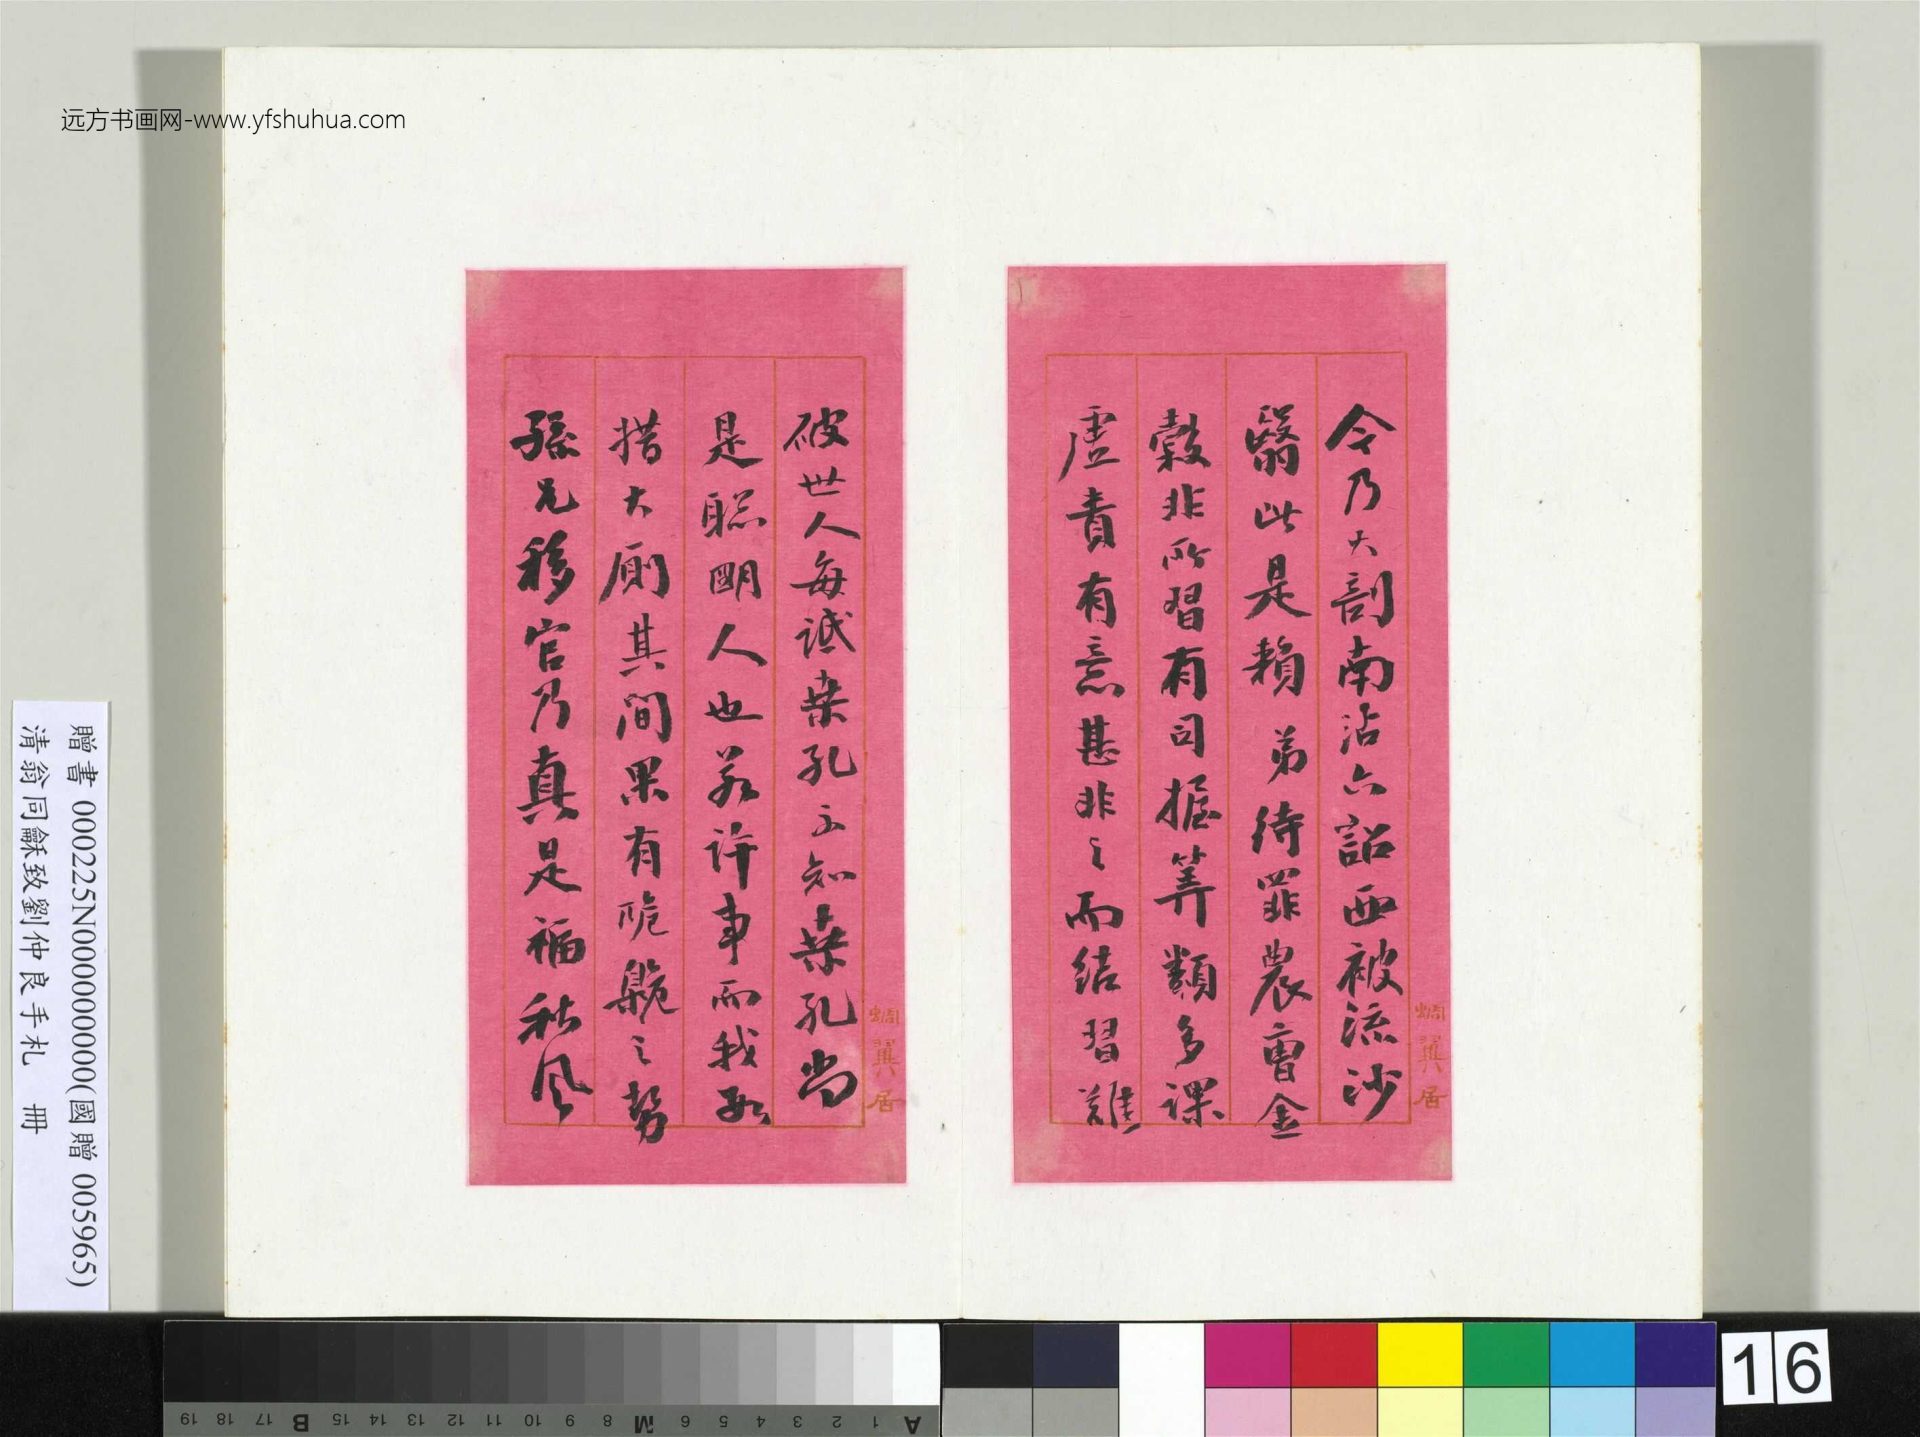 远方书画网-www.yfshuhua.com
今乃大割南沾六詔西被流沙
翳此是賴弟待罪農曹金
穀非所習有司握筭類多課
虛責有意甚非之而結習難
蜩翼居
破世人每詆桒孔不知桒孔尚
是聦眀人也若許事而我如
措大厠其間果有臲之勢
孫兄移官乃真是福秋風
蜩翼居
贈書 000225N000000000(國贈 005965)
清翁同龢致劉仲良手札 冊
A 1 2 3 4 5 6 M 8 9 10 11 12 13 14 15 B 17 18 19
16